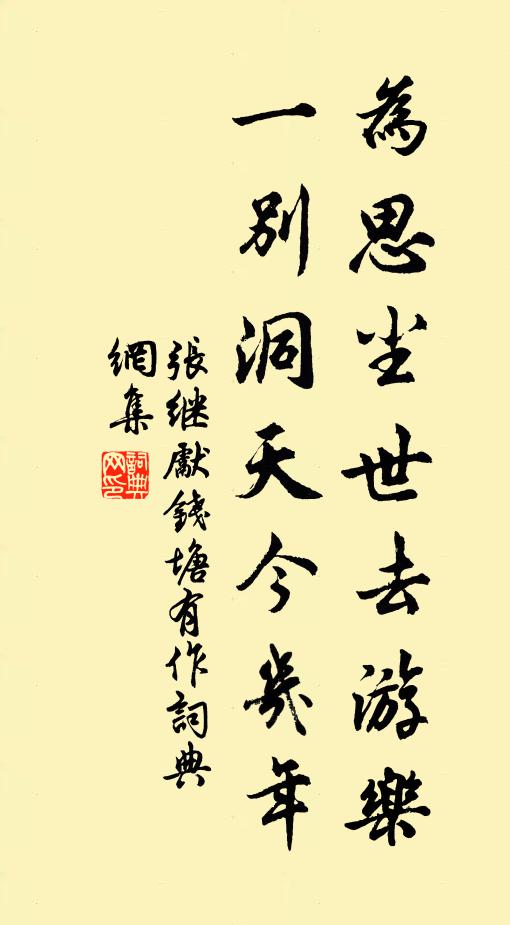 為思尘世去游樂
一別洞天今幾年
張继獻錢塘有作詞典
網集
詞典網印